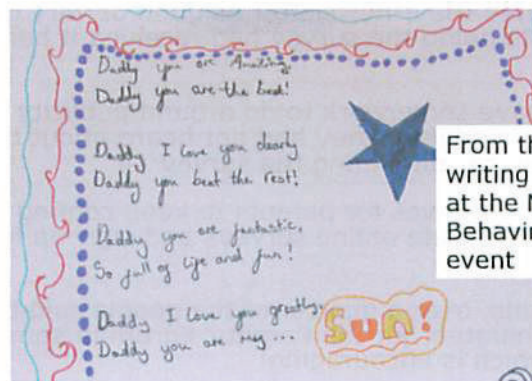 Daddy you are Amazing,
Daddy you are the best!
Daddy I love you dearly
Daddy you beat the rest!
Daddy you are fantastic,
So full of life and fun!
Daddy I love you greatly,
Daddy you are my ...
Sun!
From th
writing
at the N
Behavin
event